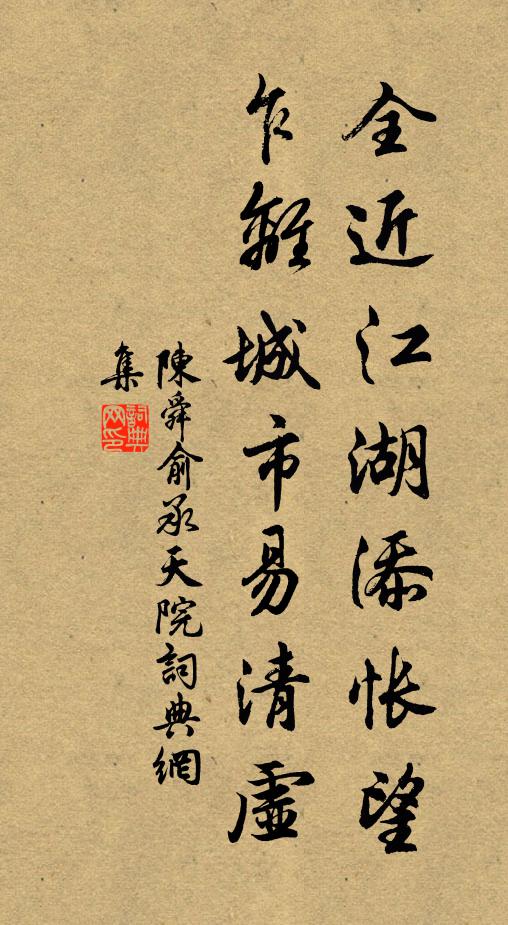 全近江湖添悵望
乍離城市易清虛
陳舜俞承天院詞典網
集
詞典網印